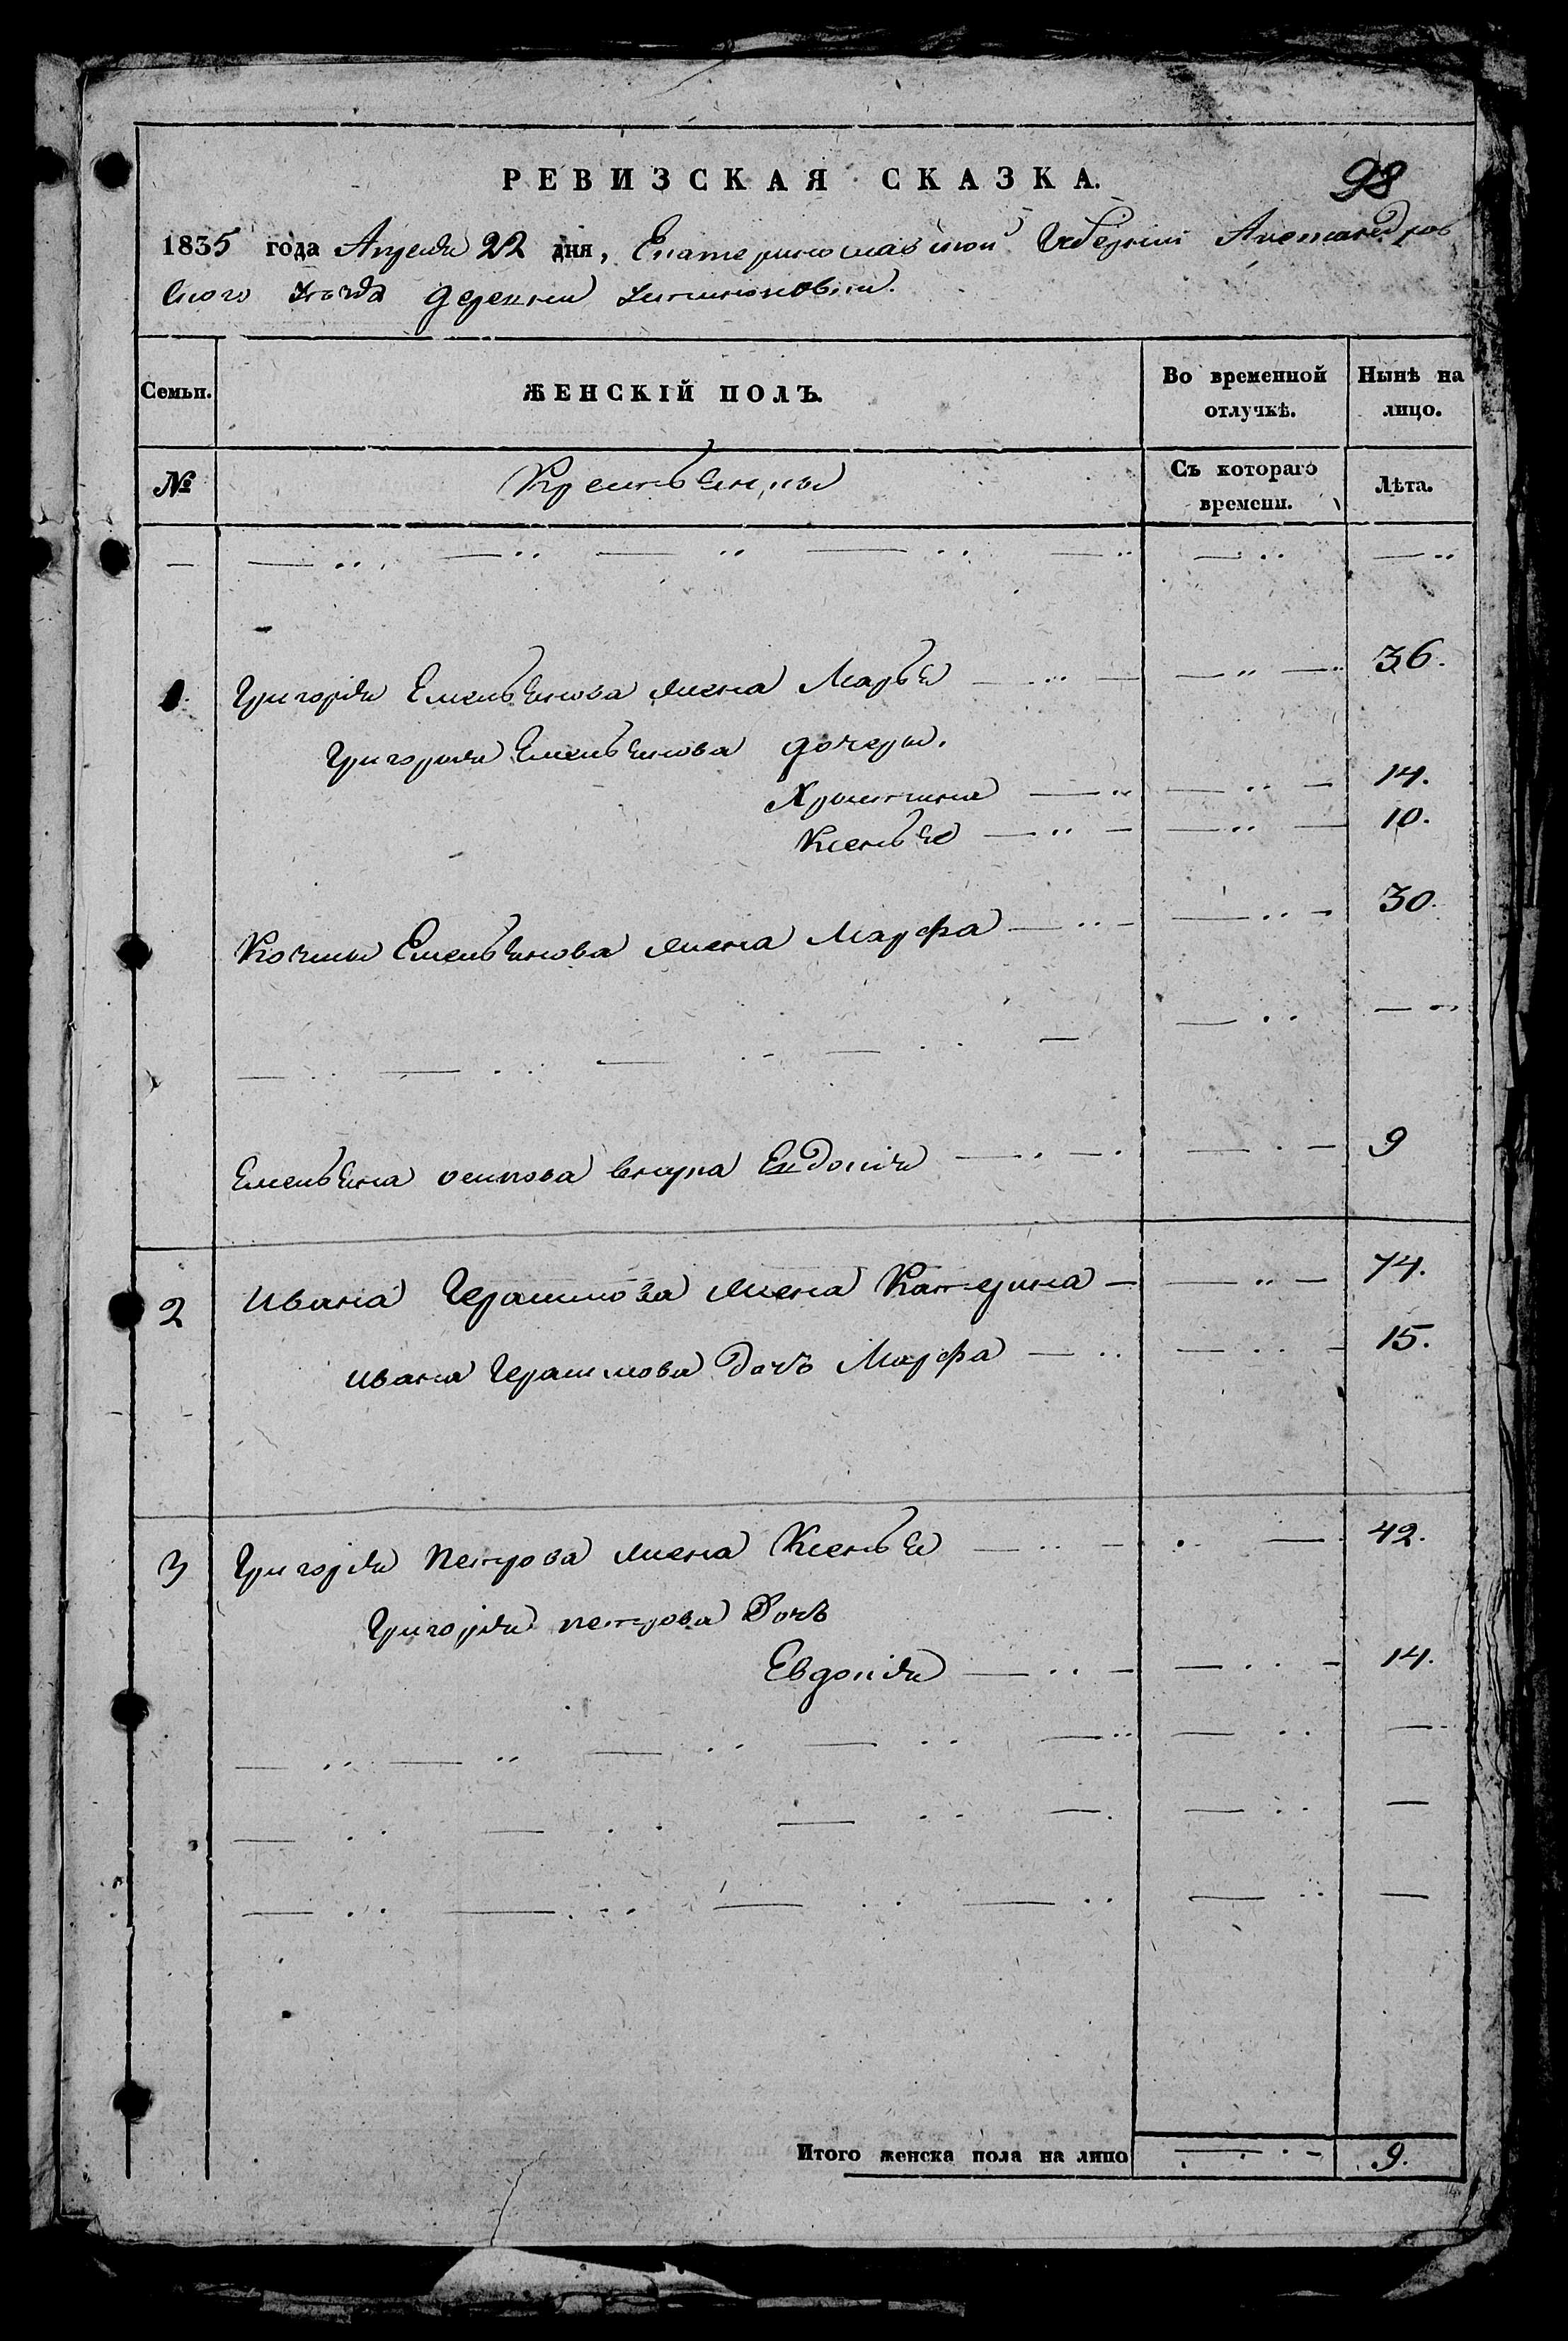 РЕВИЗСКАЯ СКАЗКА.
98
1835 года Апреля 22 дня, Екатеринославской Губернии Александров
ского уезда деревни
Семьи.
ЖЕНСКІЙ ПОЛЪ.
Во временной отлучкѣ.
Нынѣ на лицо.
№
Крестьянны
Съ котораго времени.
Лѣта.
1. Григорія Емельянова жена Марья 36.
Григория Емельянова дочеры.
Христина 14.
Ксенья 10.
Емельянова жена Марфа 30.
Емельяна осипова внука Евдокія 9
2 Ивана Герасимова жена Катерина 74.
ивана Герасимова дочь Марфа 15.
3 Григорія Петрова жена Ксенья 42.
Григорія петрова дочь
Евдокія 14.
Итого женска пола на лицо 9.